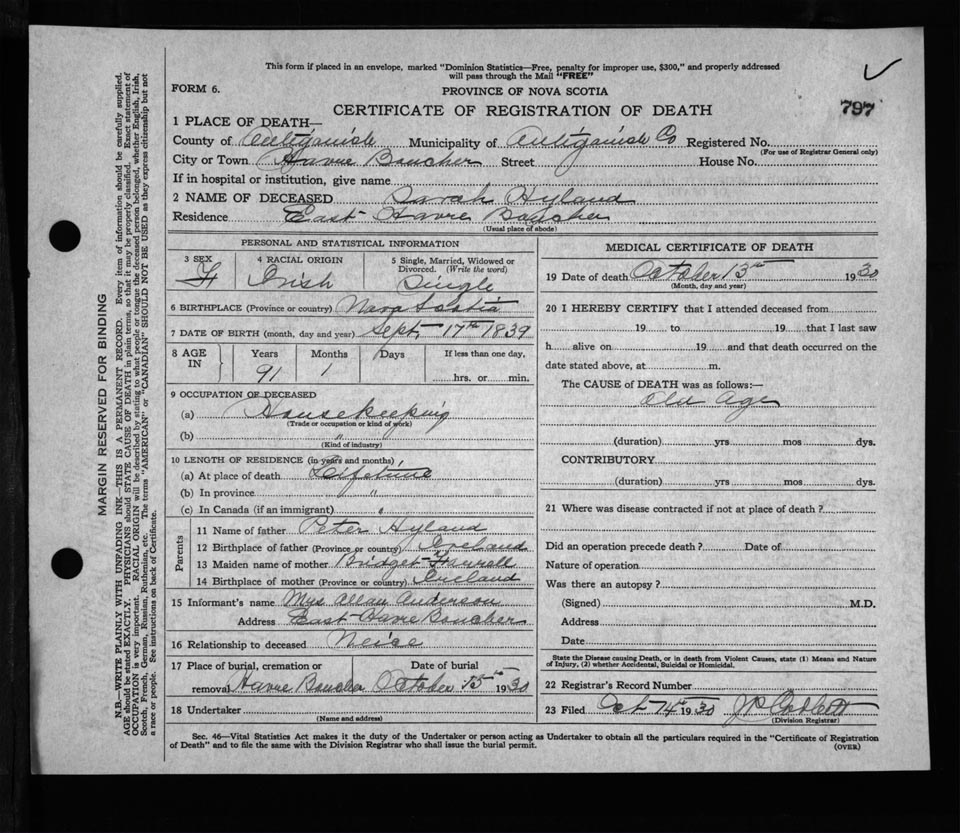 This form if placed in an envelope, marked "Dominion Statistics—Free, penalty for improper use, $300," and properly addressed
will pass through the Mail "FREE"
FORM 6.
PROVINCE OF NOVA SCOTIA
CERTIFICATE OF REGISTRATION OF DEATH
797
1 PLACE OF DEATH—
County of Antigonish Municipality of Antigonish Co Registered No.
(For use of Registrar General only)
City or Town Havre Boucher Street House No.
If in hospital or institution, give name
2 NAME OF DECEASED Sarah Hyland
Residence East Havre Boucher
(Usual place of abode)
PERSONAL AND STATISTICAL INFORMATION
3 SEX F
4 RACIAL ORIGIN Irish
5 Single, Married, Widowed or Divorced. (Write the word) Single
6 BIRTHPLACE (Province or country) Nova Scotia
7 DATE OF BIRTH (month, day and year) Sept, 17th 1839
8 AGE IN Years 91 Months 1 Days If less than one day, hrs. or min.
9 OCCUPATION OF DECEASED
(a) Housekeeping
(Trade or occupation or kind of work)
(b) "
(Kind of industry)
10 LENGTH OF RESIDENCE (in years and months)
(a) At place of death Lifetime
(b) In province "
(c) In Canada (if an immigrant) "
Parents
11 Name of father Peter Hyland
12 Birthplace of father (Province or country) Ireland
13 Maiden name of mother Bridget
14 Birthplace of mother (Province or country) Ireland
15 Informant's name Mrs Allan Anderson
Address East Havre Boucher
16 Relationship to deceased Neice
17 Place of burial, cremation or removal Havre Boucher Date of burial October 15th 1930
18 Undertaker
(Name and address)
MEDICAL CERTIFICATE OF DEATH
19 Date of death October 13th 1930
(Month, day and year)
20 I HEREBY CERTIFY that I attended deceased from
19 to 19 that I last saw
h alive on 19 and that death occurred on the
date stated above, at m.
The CAUSE OF DEATH was as follows:—
Old Age
(duration) yrs mos dys.
CONTRIBUTORY
(duration) yrs mos dys.
21 Where was disease contracted if not at place of death?
Did an operation precede death? Date of
Nature of operation
Was there an autopsy?
(Signed) M.D.
Address
Date
State the Disease causing Death, or in death from Violent Causes, state (1) Means and Nature
of Injury, (2) whether Accidental, Suicidal or Homicidal.
22 Registrar's Record Number
23 Filed Oct 14th 1930 J P Corbett
(Division Registrar)
Sec. 46—Vital Statistics Act makes it the duty of the Undertaker or person acting as Undertaker to obtain all the particulars required in the "Certificate of Registration
of Death" and to file the same with the Division Registrar who shall issue the burial permit.
(OVER)
MARGIN RESERVED FOR BINDING
N.B.—WRITE PLAINLY WITH UNFADING INK—THIS IS A PERMANENT RECORD. Every item of information should be carefully supplied.
AGE should be stated EXACTLY. PHYSICIANS should STATE CAUSE OF DEATH in plain terms, so that it may be properly classified. Exact statement of
OCCUPATION is very important. RACIAL ORIGIN will be described by stating to what people or tongue the deceased person belonged, whether English, Irish,
Scotch, French, German, Russian, Ruthenian, etc. The terms "AMERICAN" or "CANADIAN" SHOULD NOT BE USED as they express citizenship but not
a race or people. See instructions on back of Certificate.